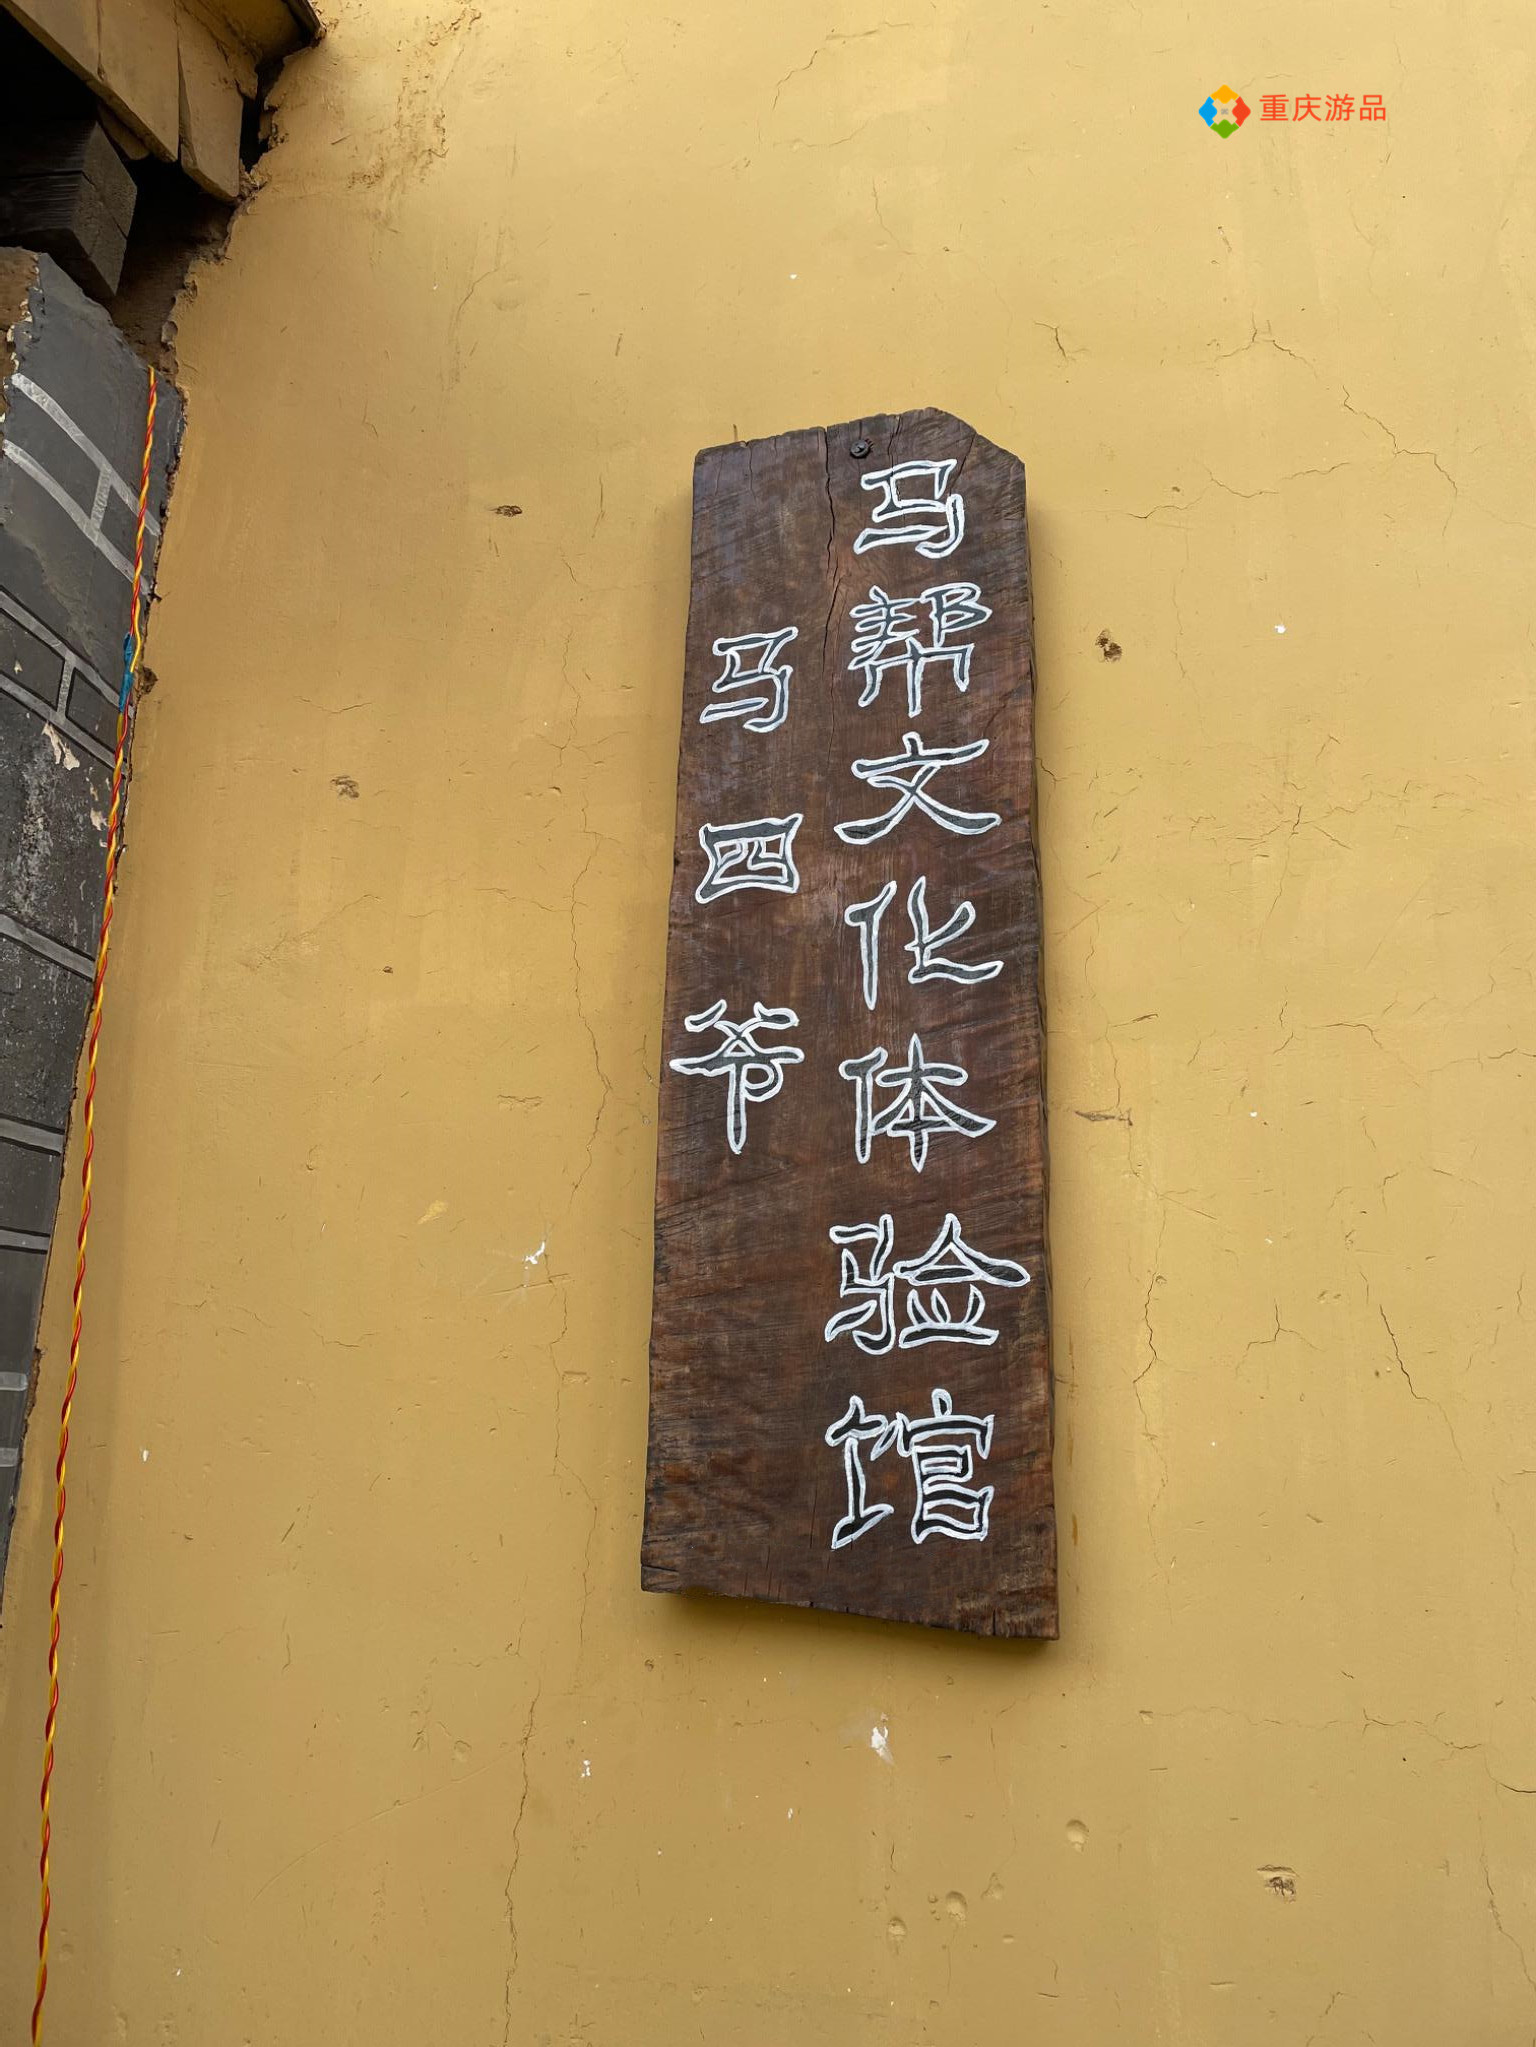 重庆游品
马帮文化体验馆
马四爷